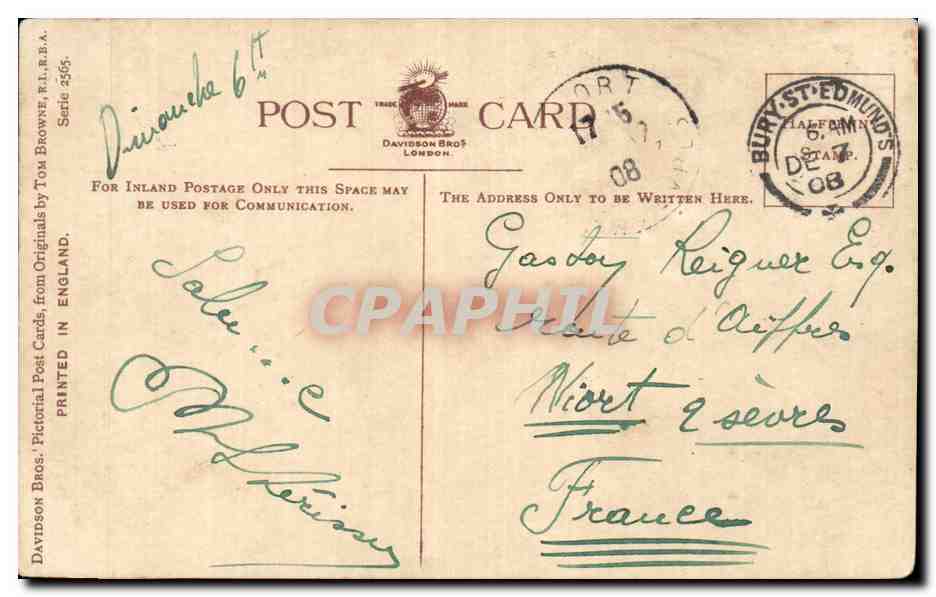 Dimanche 6
POST CARD
TRADE MARK
DAVIDSON BROS.
LONDON.
FOR INLAND POSTAGE ONLY THIS SPACE MAY
BE USED FOR COMMUNICATION.
THE ADDRESS ONLY TO BE WRITTEN HERE.
HALFPENNY
STAMP.
BURY·ST·EDMUND'S
6 AM
DE 7
08
ORT
17 15
08
Gaston Reigner Esq.
route d'Aiffres
Niort 2 sèvres
France
CPAPHIL
DAVIDSON BROS.' Pictorial Post Cards, from Originals by TOM BROWNE, R.I., R.B.A.
Serie 2565.
PRINTED IN ENGLAND.